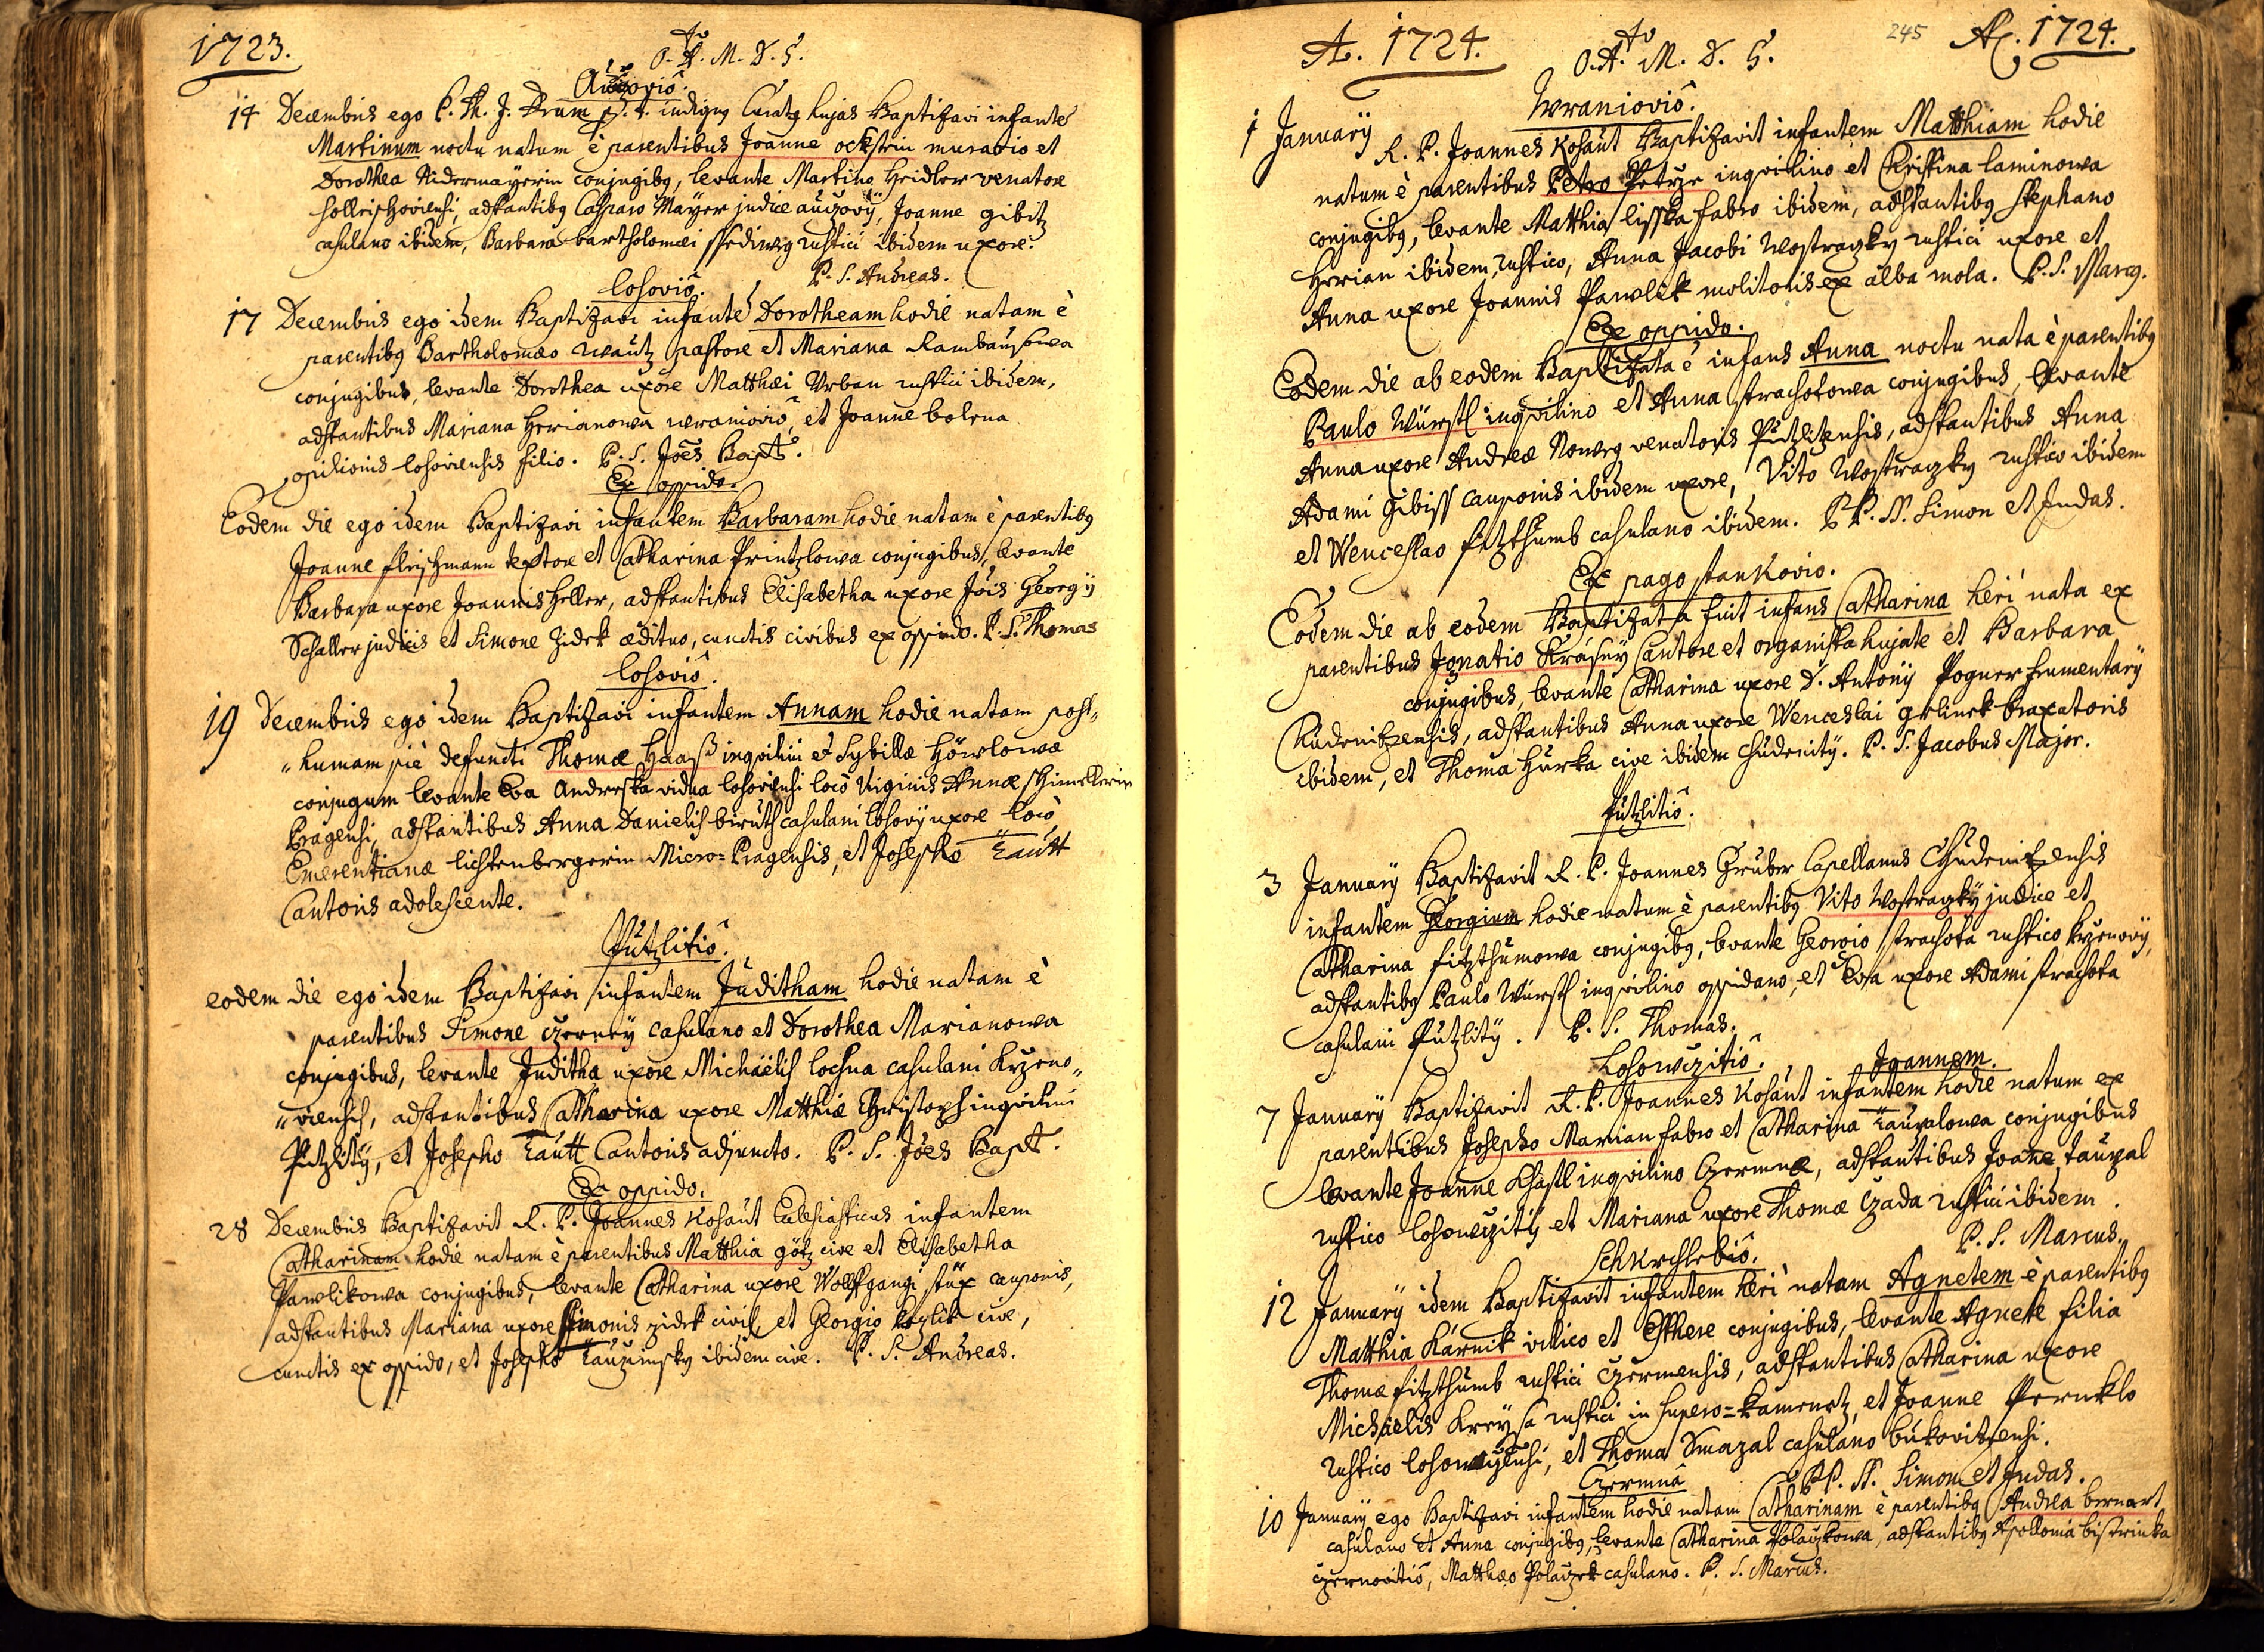 1723.
O. A. M. D. G.
Auczovio.
14 Decembris ego P. Th. J. Pram p. t. indignus Curatus hujas Baptizavi infantem
Martinum noctu natum è parentibus Joanne ockstein murario et
Dorothea Nidermayerin conjugibus, levante Martino Heidler venatore
adstantibus Casparo Mayer judice auczovÿ, Joanne gibitz
casulano ibidem, Barbara bartholomæi rustici ibidem uxore.
P. S. Andreas.
losovio.
17 Decembris ego idem Baptizavi infante Dorotheam hodie natam è
parentibus Bartholomæo wautz pastore et Mariana Rambausowa
conjugibus, levante Dorothea uxore Matthæi Urban rustici ibidem,
adstantibus Mariana Herianowa wraniovio, et Joanne bolena
opilionis losoviensis filio. P. S. Joes Bapt.
Ex oppido.
Eodem die ego idem Baptizavi infantem Barbaram hodie natam è parentibus
Joanne fleischmann textore et Catharina Printzlowa conjugibus, levante
Barbara uxore Joannis Heller, adstantibus Elisabetha uxore Jois Georgÿ
Schaller judicis et Simone Zidek ædituo, cunctis civibus ex oppido. P. S. Thomas
losovio.
19 Decembris ego idem Baptizavi infantem Annam hodie natam post„
„humam piè defuncti Thomæ Haaß inqvilini et Sybillæ
conjugum levante Eva Andreska vidua losoviensi locò Virginis Annæ
Pragensi, adstantibus Anna Danielis biruth casulani losovÿ uxore locò
Emerentianæ lichtenbergerin Micro=Pragensis, et Josepho Kautt
Cantoris adolescente.
Putzlitio.
eodem die ego idem Baptizavi infantem Juditham hodie natam è
parentibus Simone czerney casulano et Dorothea Marianowa
conjugibus, levante Juditha uxore Michaëlis lochna casulani Krzeno„
„viensis, adstantibus Catharina uxore Matthiæ Christoph inqvilini
Putzlitÿ, et Josepho Kautt Cantoris adjuncto. P. S. Joes Bapt.
Ex oppido.
28 Decembris Baptizavit R. P. Joannes Kohaut Eclesiasticus infantem
Catharinam hodie natam è parentibus Matthia götz cive et Elisabetha
Pawlikowa conjugibus, levante Catharina uxore Wolffgangi stüx cauponis,
adstantibus Mariana uxore Simonis zidek civis, et Georgio kozlik cive,
cunctis ex oppido, et Josepho Kaurzimsky ibidem cive. P. S. Andreas.
A. 1724.
O. A. M. D. G.
245
A. 1724.
Wraniovio.
1 Januarÿ R. P. Joannes Kohaut Baptizavit infantem Matthiam hodie
natum è parentibus Petro Petrze inqvilino et Christina laminowa
conjugibus, levante Matthia lisska fabro ibidem, adstantibus Stephano
Herian ibidem rustico, Anna Jacobi Wostraczky rustici uxore et
Anna uxore Joannis Pawlik molitoris ex alba mola. P. S. Marcus.
Ex oppido.
Eodem die ab eodem Baptizata è infans Anna noctu nata è parentibus
Paulo Würstl inqvilino et Anna strachotowa conjugibus, levante
Anna uxore Andreæ Nowey venatoris Putzlitzensis, adstantibus Anna
Adami Gibiss cauponis ibidem uxore, Vito Wostraczky rustico ibidem
et Wenceslao fitzthumb casulano ibidem. PP. SS. Simon et Judas.
Ex pago stankovio.
Eodem die ab eodem Baptizata fuit infans Catharina heri nata ex
parentibus Ignatio Krásny Cantore et organista hujate et Barbara
conjugibus, levante Catharina uxore D. Antonÿ Pogner frumentarÿ
Chudenitzensis, adstantibus Anna uxore Wenceslai gelinek braxatoris
ibidem, et Thoma Hurka cive ibidem Chudenitÿ. P. S. Jacobus Major.
Putzlitio.
3 Januarÿ Baptizavit R. P. Joannes Gruber Capellanus Chudenitzensis
infantem Georgium hodie natum è parentibus Vito Wostraczkÿ judice et
Catharina fitzthumowa conjugibus, levante Georgio strachota rustico krzenovÿ,
adstantibus Paulo Würstl inqvilino oppidano, et Eva uxore Adami strachota
casulani Putzlitÿ. P. S. Thomas.
Lohowczitio. Joannem.
7 Januarÿ Baptizavit R. P. Joannes Kohaut infantem hodie natum ex
parentibus Josepho Marian fabro et Catharina Kauzalowa conjugibus
levante Joanne Chastl inqvilino Czermnæ, adstantibus Joanne kauzal
rustico lohowczitÿ et Mariana uxore Thomæ Czada rustici ibidem.
P. S. Marcus.
Schkrchlebio.
12 Januarÿ idem Baptizavit infantem heri natam Agnetem è parentibus
Matthia Kárnik vilico et Esthere conjugibus, levante Agnete filia
Thomæ fitzthumb rustici Czermensis, adstantibus Catharina uxore
Michaëlis Kreysa rustici in supero=kamenetz, et Joanne Pernklo
rustico, et Thoma Smazal casulano bukovitzensi.
PP. SS. Simon et Judas.
Czermnâ
10 Januarÿ ego Baptizavi infantem hodie natam Catharinam è parentibus Andrea bernart
casulano et Anna conjugibus, levante Catharina Polaczkowa, adstantibus Apollonia bistrinka
czernovitio, Matthæo Polaczek casulano. P. S. Marcus.